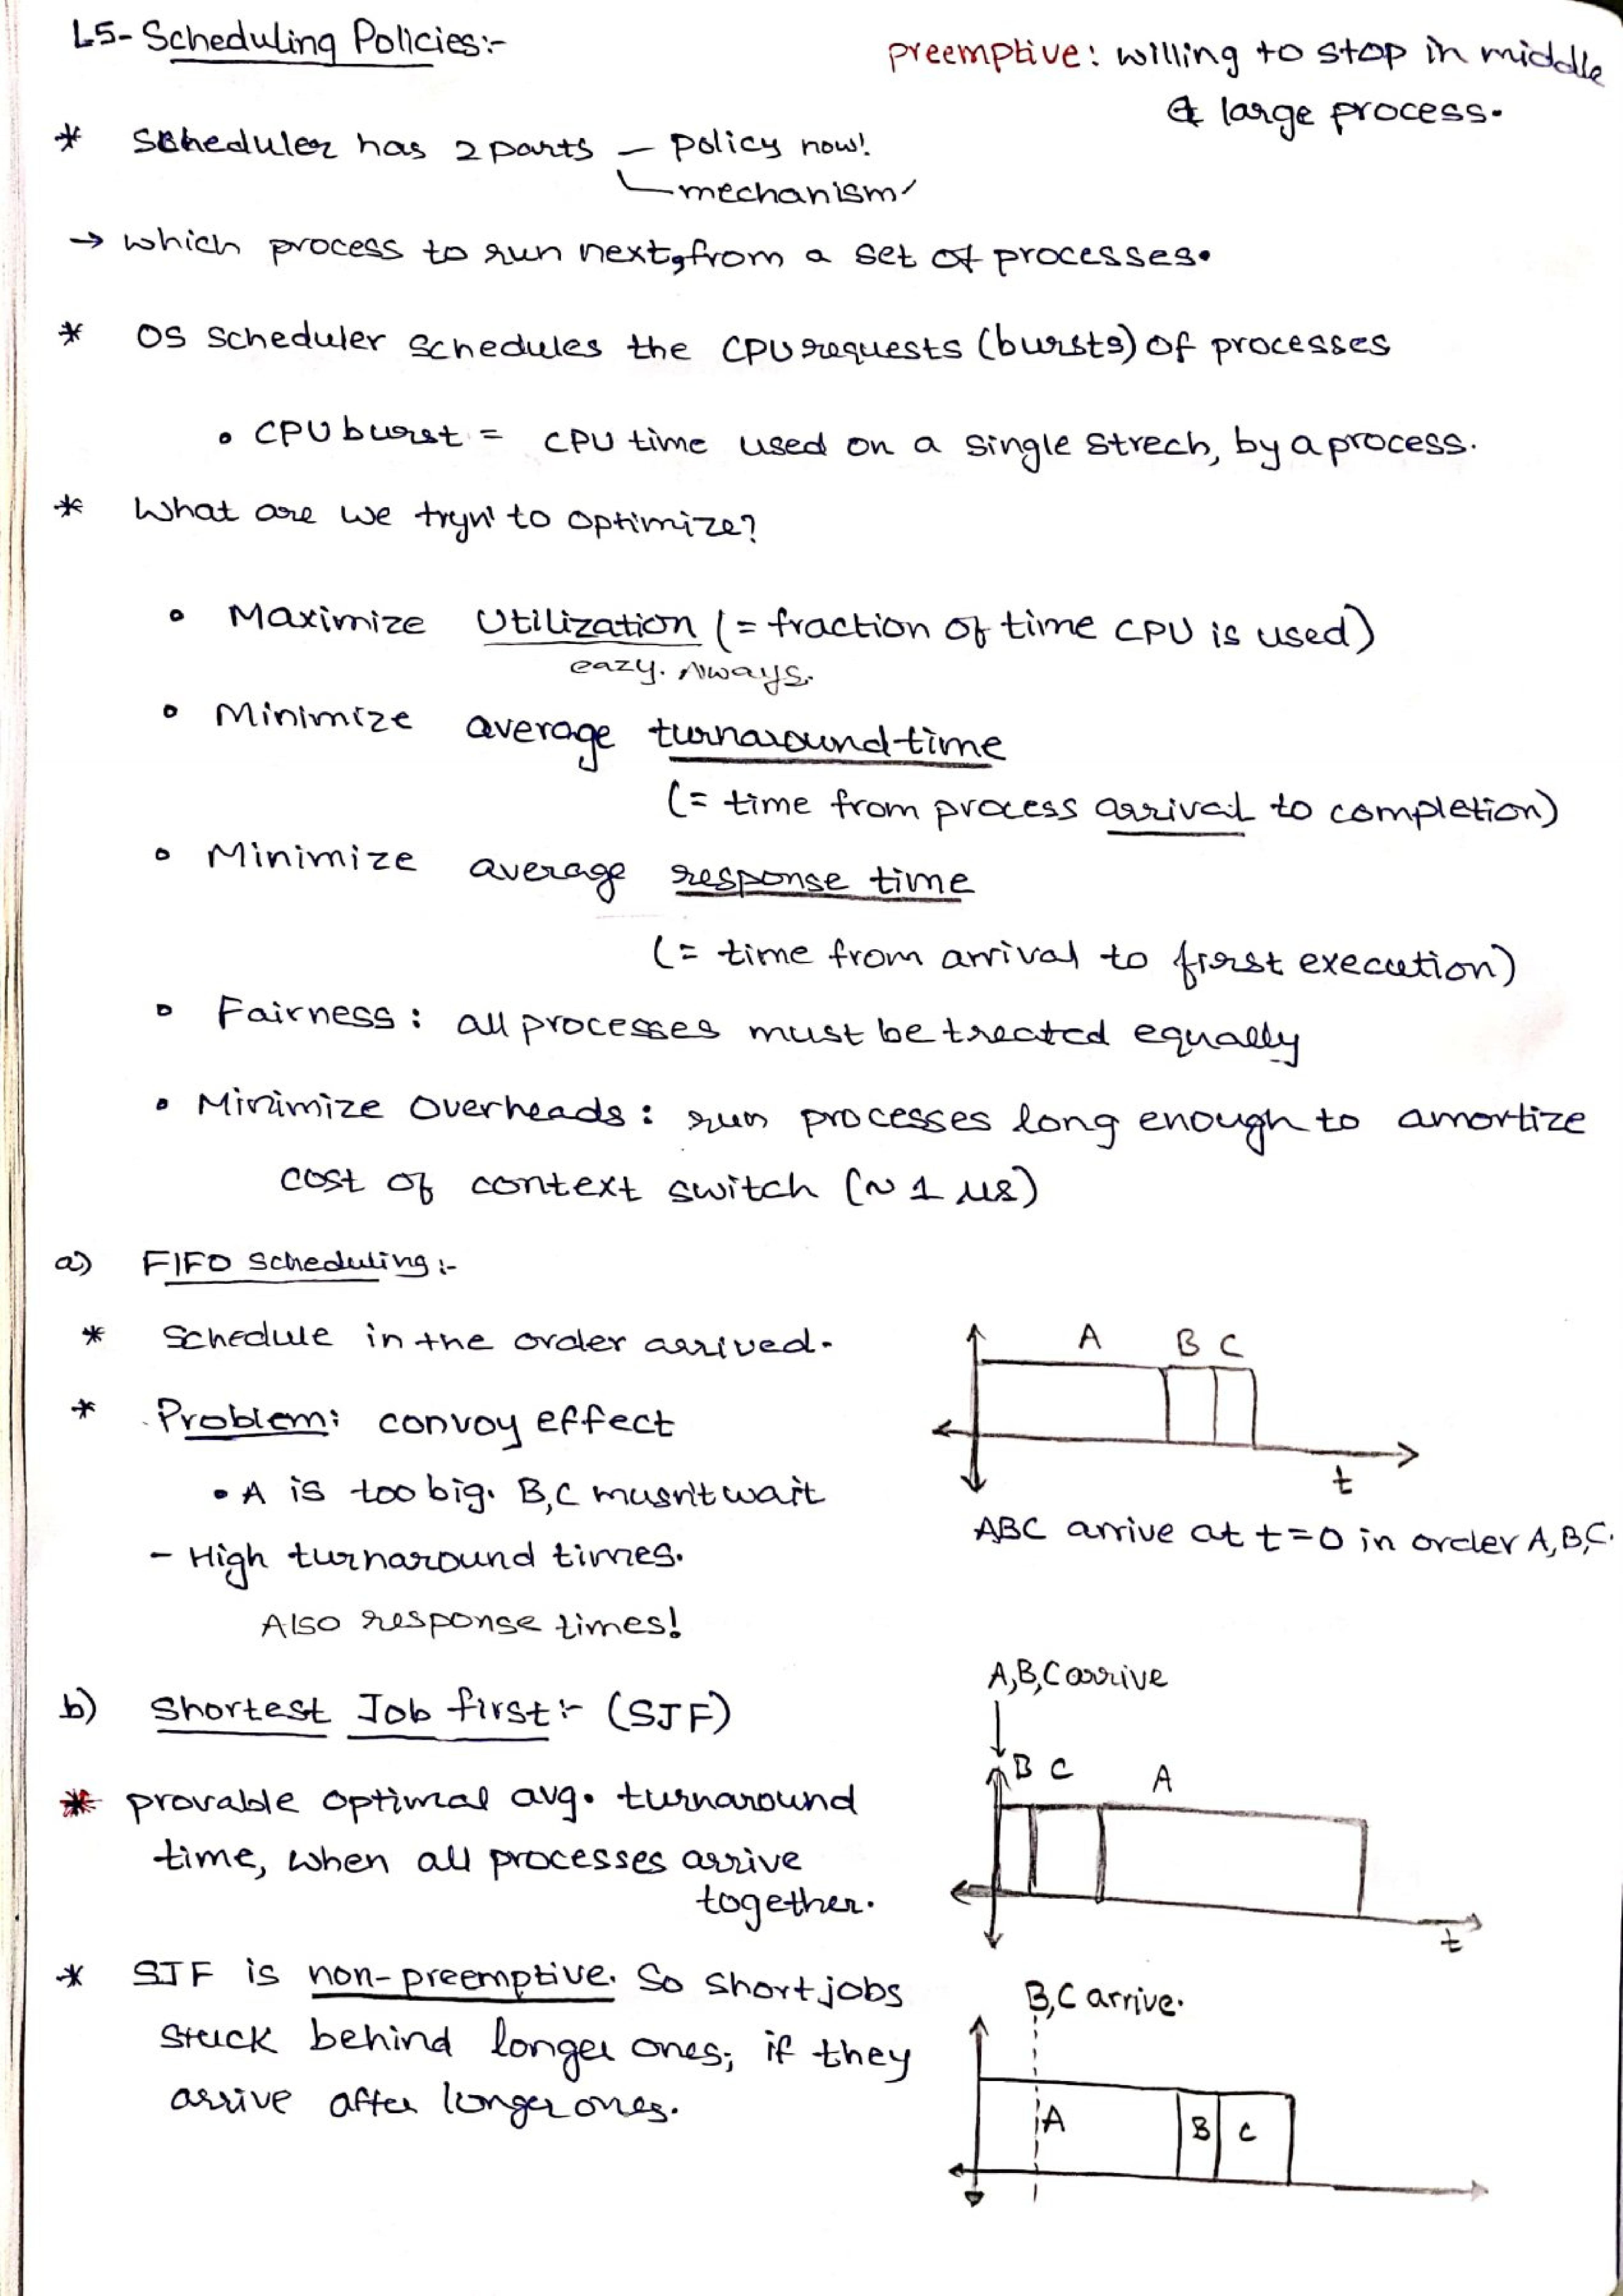 L5- Scheduling Policies:-
preemptive: willing to stop in middle
of large process.
* Scheduler has 2 parts – policy now!
mechanism
→ which process to run next, from a set of processes.
* OS scheduler schedules the CPU requests (bursts) of processes
• CPU burst = CPU time used on a single strech, by a process.
* What are we tryn' to optimize?
• Maximize Utilization (= fraction of time CPU is used)
eazy. Always.
• Minimize average turnaround time
(= time from process arrival to completion)
• Minimize average response time
(= time from arrival to first execution)
• Fairness: all processes must be treated equally
• Minimize overheads: run processes long enough to amortize
cost of context switch (~ 1 μs)
a) FIFO scheduling:-
* Schedule in the order arrived.
* Problem: convoy effect
• A is too big. B,C musn't wait
- High turnaround times.
Also response times!
A B C
t
ABC arrive at t=0 in order A,B,C.
b) Shortest Job first:- (SJF)
* provable optimal avg. turnaround
time, when all processes arrive
together.
A,B,C arrive
B C A
t
* SJF is non-preemptive. So short jobs
stuck behind longer ones, if they
arrive after longer ones.
B,C arrive.
A B C